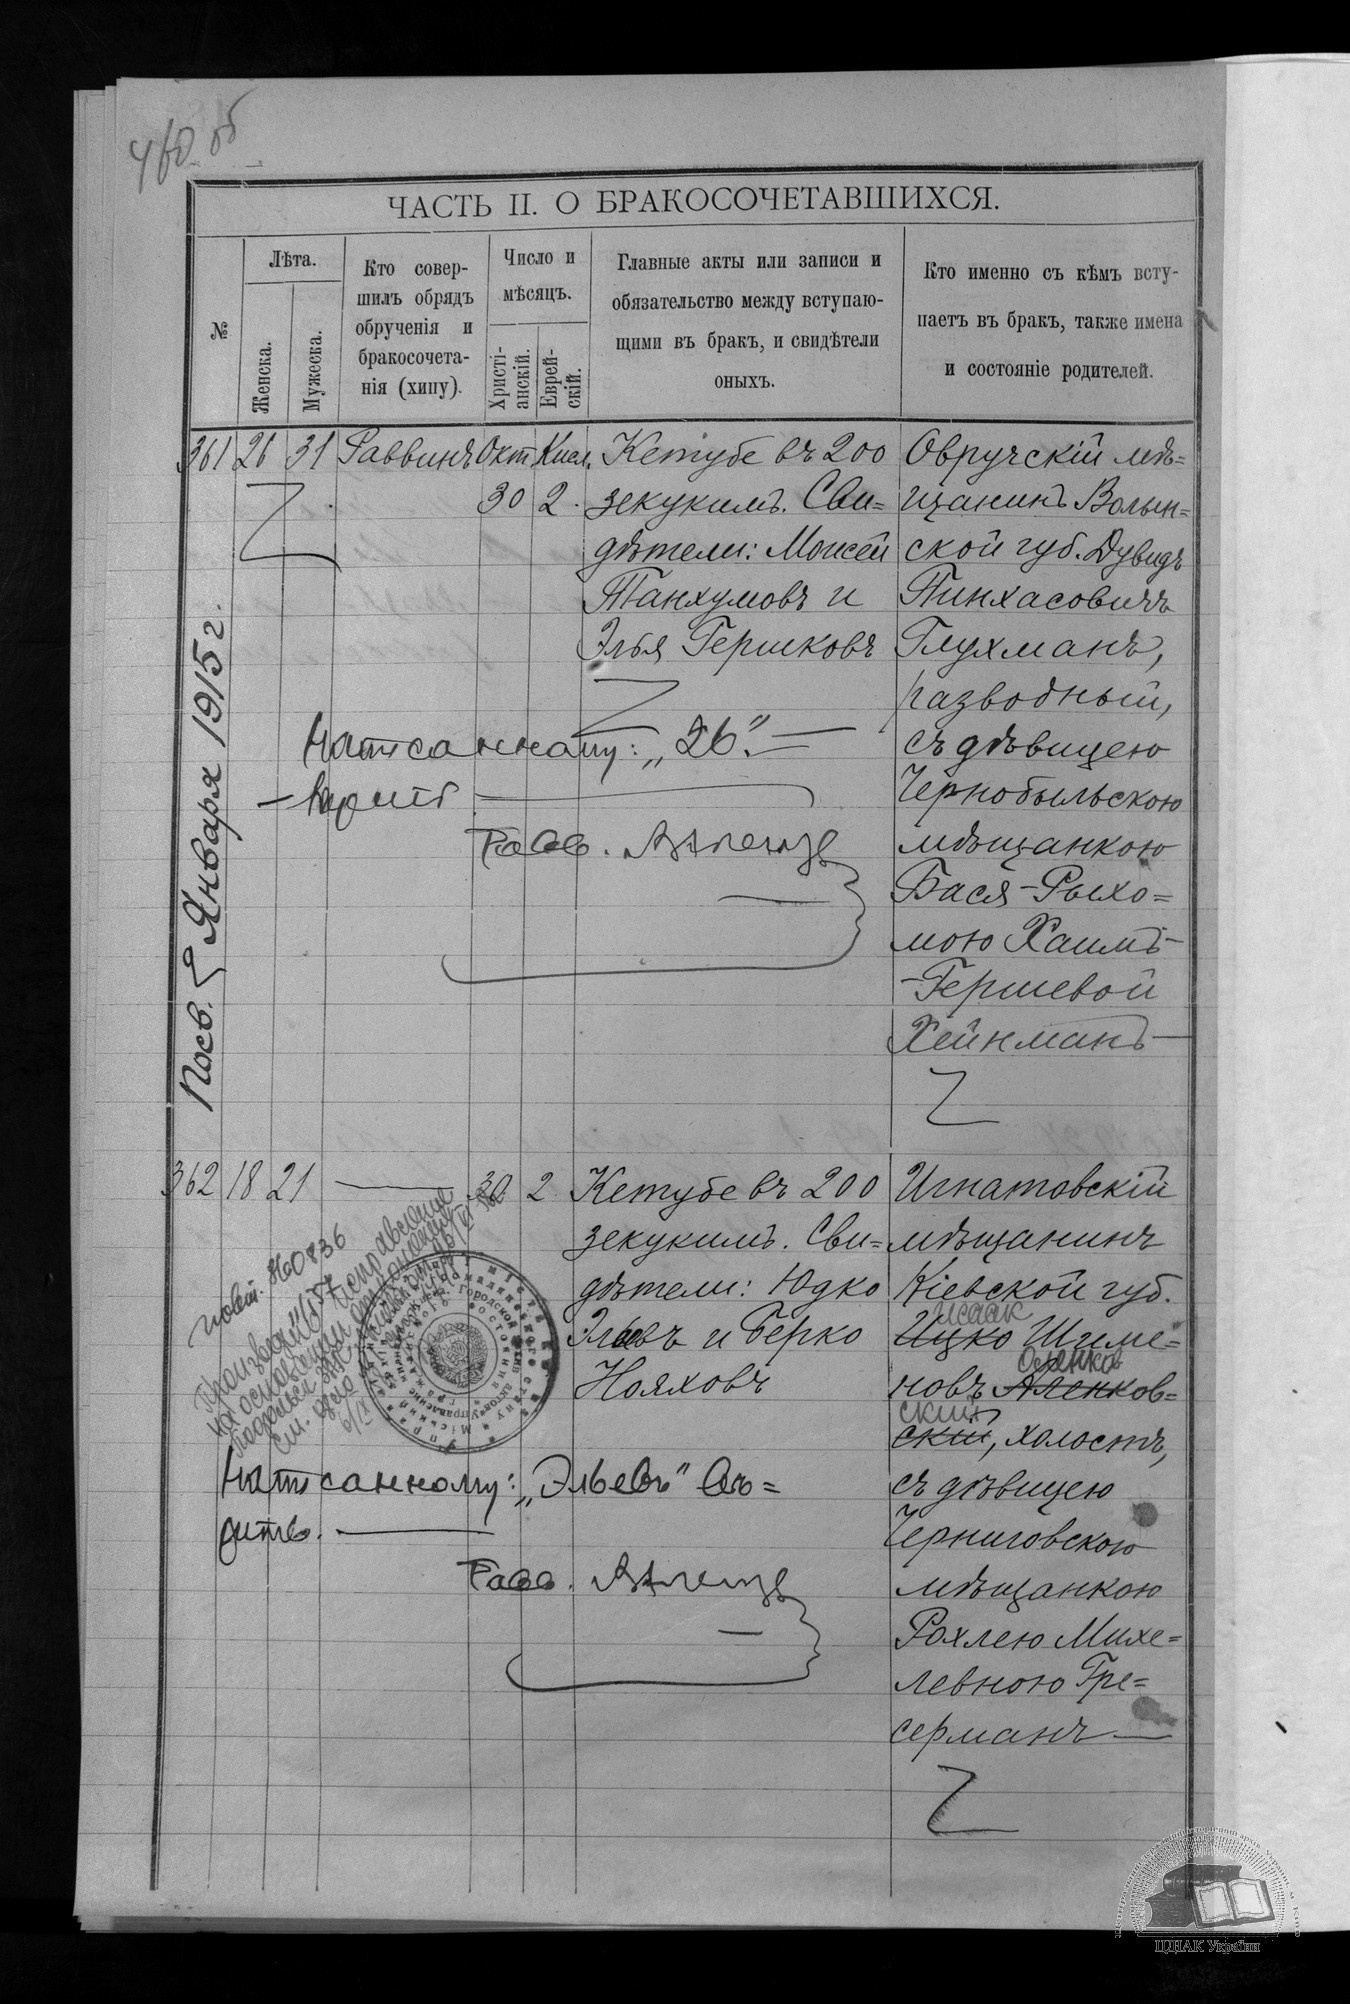 460 об
ЧАСТЬ II. О БРАКОСОЧЕТАВШИХСЯ.
№
Лѣта.
Женска.
Мужеска.
Кто совер-
шилъ обрядъ
обрученія и
бракосочета-
нія (хипу).
Число и
мѣсяцъ.
Христі-
анскій.
Еврей-
скій.
Главные акты или записи и
обязательство между вступаю-
щими въ бракъ, и свидѣтели
оныхъ.
Кто именно съ кѣмъ всту-
паетъ въ бракъ, также имена
и состояніе родителей.
361 26 31 Раввинъ Окт. Кисл.
30 2
Кетубе въ 200
зекукимъ. Сви=
дѣтели: Моисей
Танхумовъ и
Элья Гершковъ
Овручскій мѣ=
щанинъ Волын=
ской губ. Дувидъ
Пинхасовичъ
Глухманъ,
разводный,
съ дѣвицею
Чернобыльскою
мѣщанкою
Бася-Рыхо=
мою Хаимъ-
-Гершевой
Хейнманъ
Написанному: „26“
Равв.
Посв. Января 1915 г.
362 18 21 30 2
Кетубе въ 200
зекукимъ. Сви=
дѣтели: Юдко
Эльевъ и Берко
Нояховъ
Игнатовскій
мѣщанинъ
Кіевской губ.
Исаак
Ицко Шиме=
Оленков
новъ Аленков=
ский
скій, холостъ,
съ дѣвицею
Черниговскою
мѣщанкою
Рохлею Михе=
левною Гре=
серманъ
исправление
на основании
Написанному: „Эльевъ“ вѣ=
рить.
Равв.
ЦДІАК України